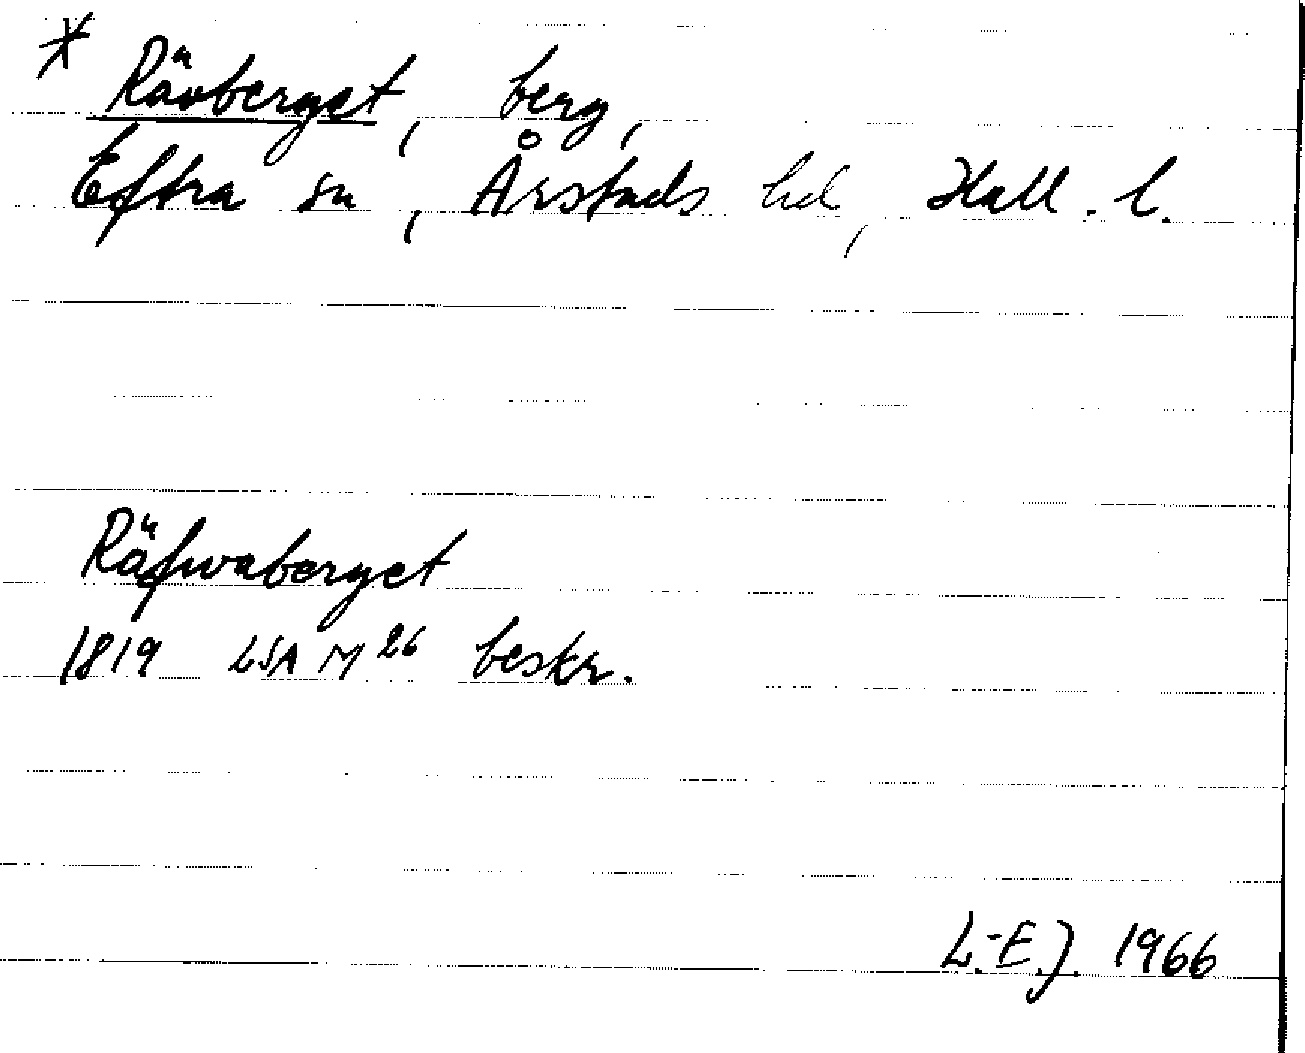 * Rävberget, berg,
Eftra sn, Årstads hd, Hall. l.
Räfwaberget
1819 LSA M 26 beskr.
L.-E.J. 1966